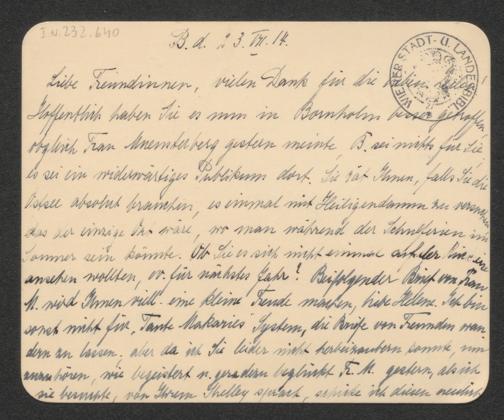 I.N. 232.640
B. d. 23. VII. 14.
WIENER STADT- U. LANDESBIBL
Liebe Freundinnen, vielen Dank für die lieben
Hoffentlich haben Sie es nun in Bornholm besser getroffen,
obgleich Frau Muensterberg gestern meinte, B. sei nichts für Sie,
es sei ein widerwärtiges Publikum dort. Sie rät Ihnen, falls Sie die
Ostsee absolut brauchen, es einmal mit Heiligendamm zu versuchen
das der einzige Ort wäre, wo man während der Schulferien im
Sommer sein könnte. Ob Sie es sich nicht einmal
ansehen wollten, ev. für nächstes Jahr? Beifolgender Brief von Frau
M. wird Ihnen viell. eine kleine Freude machen, liebe Helene. Ich bin
sonst nicht für „Tante Makaries" System, die Briefe von Freunden wan
dern zu lassen, aber da ich Sie leider nicht herbeizaubern konnte, um
anzuhören, wie begeistert u. geradezu beglückt F. M. gestern, als ich
sie besuchte, von Ihrem Shelley sprach, schicke ich diesen